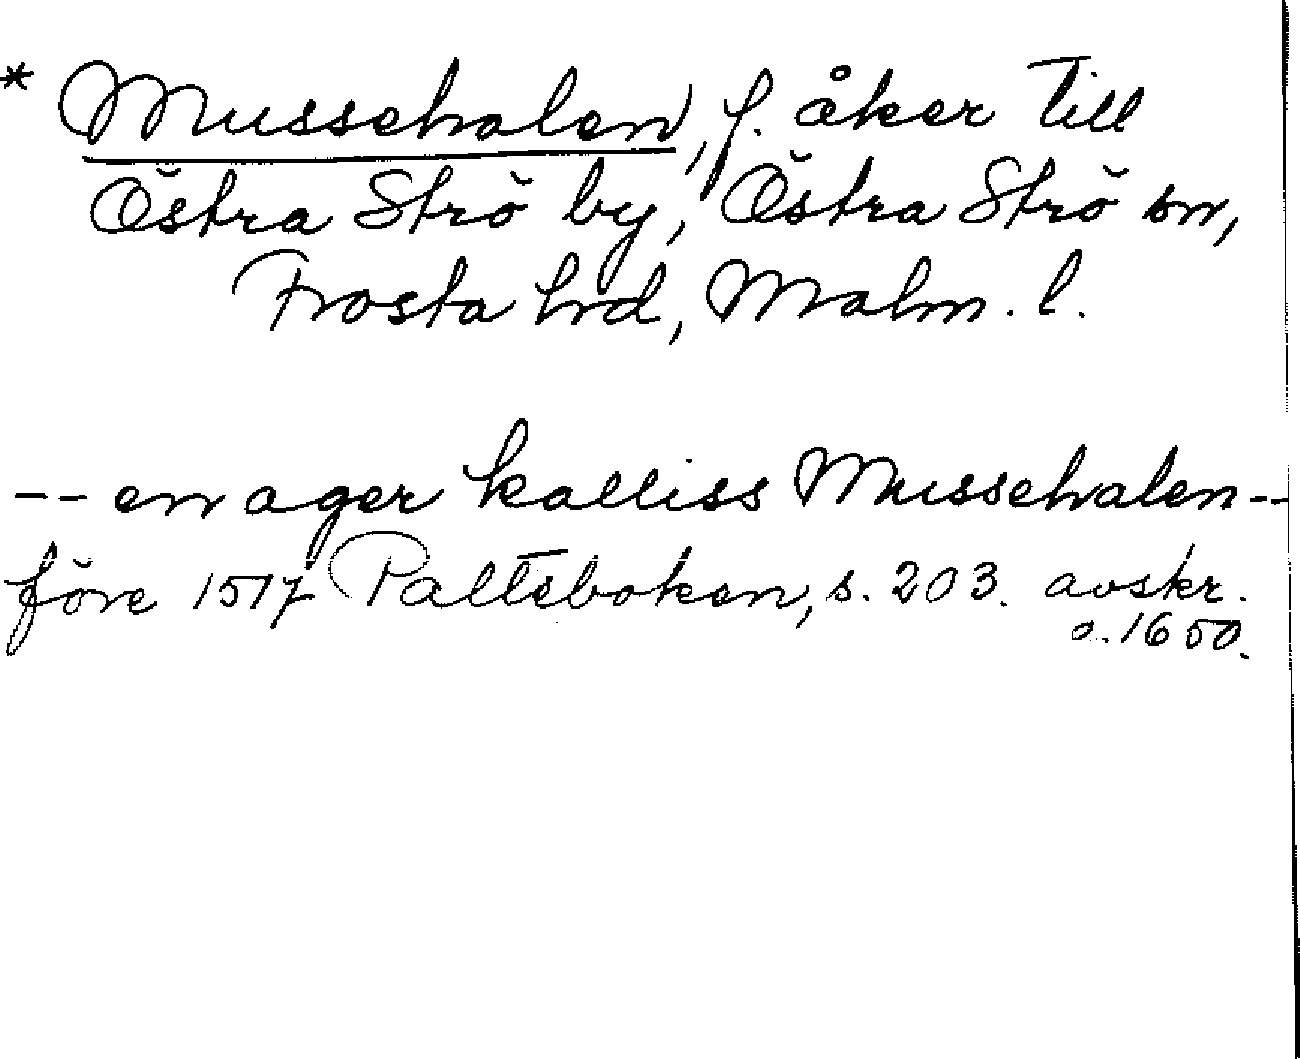 * Mussehalen, f. åker till
Östra Strö by, Östra Strö sn,
Frosta hd, Malm. l.
-- en ager kalliss Mussehalen --
före 1517 Palteboken, s. 203. avskr.
o. 1650.